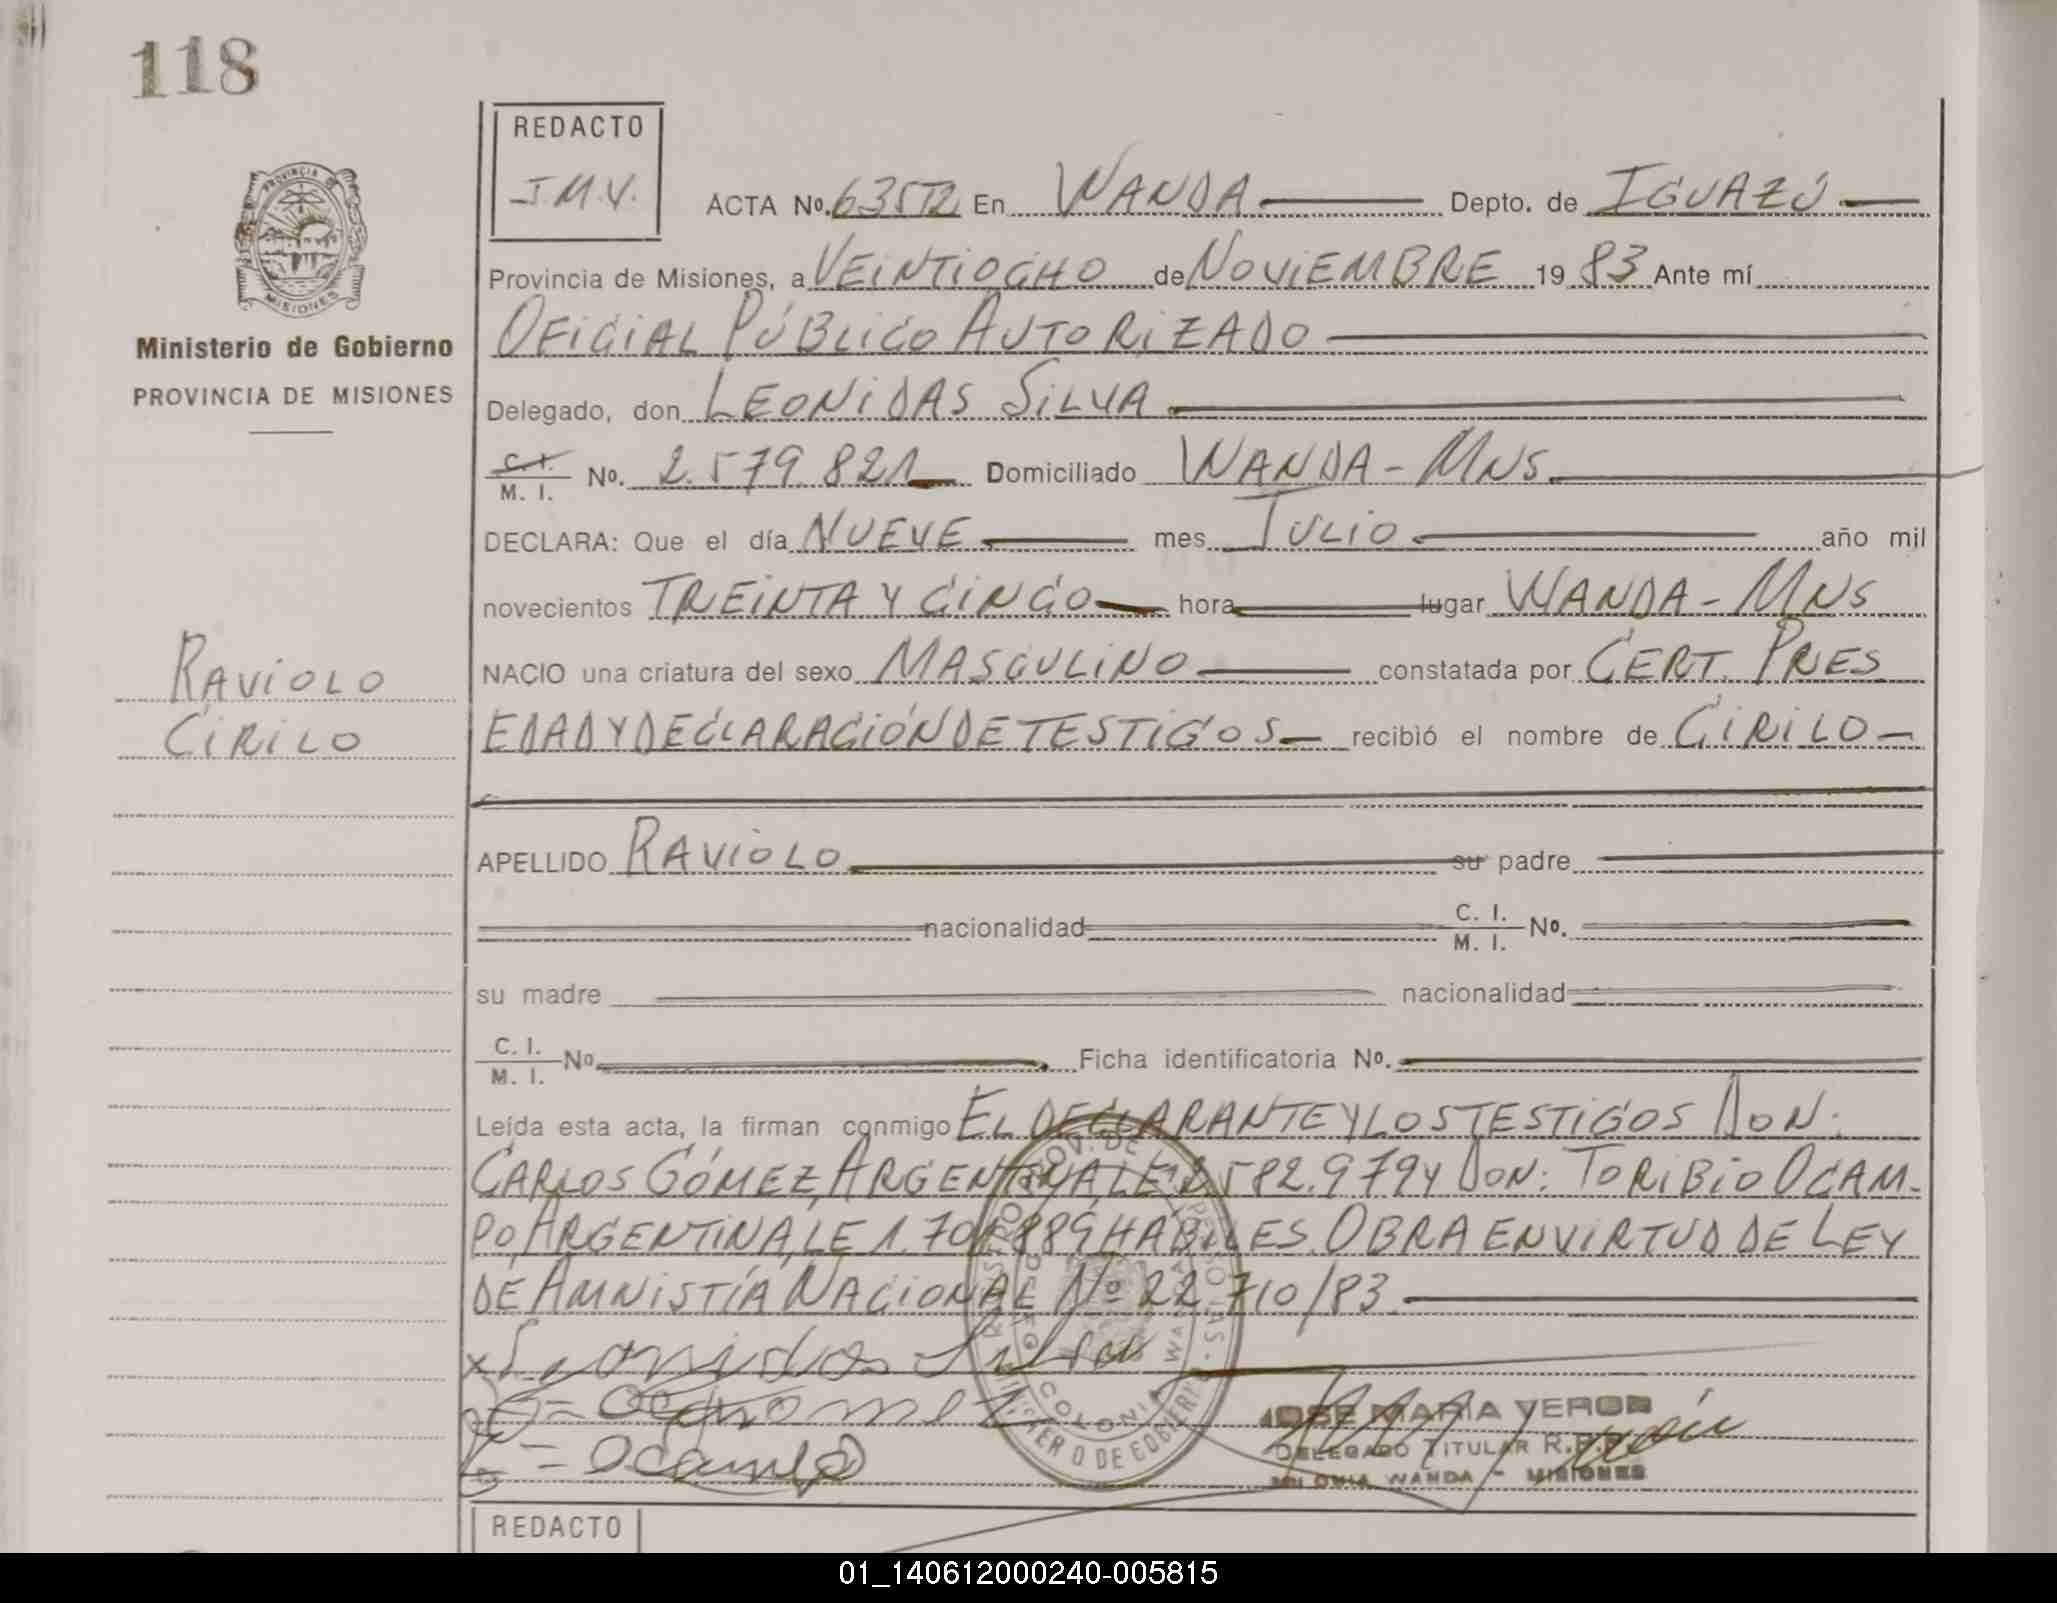 118
REDACTO
J.M.V.
ACTA No. En WANDA Depto. de IGUAZÚ
PROVINCIA
MISIONES
Ministerio de Gobierno
PROVINCIA DE MISIONES
Provincia de Misiones, a VEINTIOCHO de NOVIEMBRE 19 83 Ante mí
OFICIAL PÚBLICO AUTORIZADO
Delegado, don LEONIDAS SILVA
C. I. / M. I. No. 2.579.821 Domiciliado WANDA - MNS
DECLARA: Que el día NUEVE mes JULIO año mil
novecientos TREINTA Y CINCO hora lugar WANDA - MNS
RAVIOLO
CIRILO
NACIO una criatura del sexo MASCULINO constatada por CERT. PRES
EDAD Y DECLARACIÓN DE TESTIGOS recibió el nombre de CIRILO
APELLIDO RAVIOLO su padre
nacionalidad C. I. / M. I. No.
su madre nacionalidad
C. I. / M. I. No Ficha identificatoria No.
Leída esta acta, la firman conmigo EL DECLARANTE Y LOS TESTIGOS DON:
CARLOS GÓMEZ, ARGENTINA, LE 582.979 y DON: TORIBIO OCAM-
PO, ARGENTINA, LE 1.701.889 HABILES. OBRA EN VIRTUD DE LEY
DE AMNISTÍA NACIONAL Nº 22.710/83
x Leonidas Silva
Ocampo
JOSE MARIA VERON
DELEGADO TITULAR R.P.P.
COLONIA WANDA - MISIONES
REDACTO
01_140612000240-005815